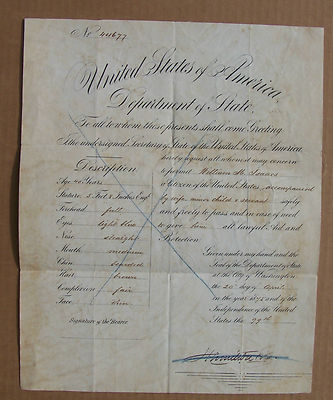 No 44677
United States of America,
Department of State,
To all to whom these presents shall come Greeting
I the undersigned, Secretary of State of the United States of America,
hereby request all whom it may concern
Description
to permit William M. Isaacs
Age 40 Years
a Citizen of the United States, accompanied
Stature 5 Feet 8 Inches Eng.
by wife, minor child & servant safely
Forehead full
and freely to pass and in case of need
Eyes light blue
to give him all lawful Aid and
Nose straight
Protection.
Mouth medium
Given under my hand and the
Chin bearded
Seal of the Department of State
at the City of Washington
Hair brown
the 26 day of April
Complexion fair
in the year 1875 and of the
Face thin
Independence of the United
Signature of the Bearer
States the 99th